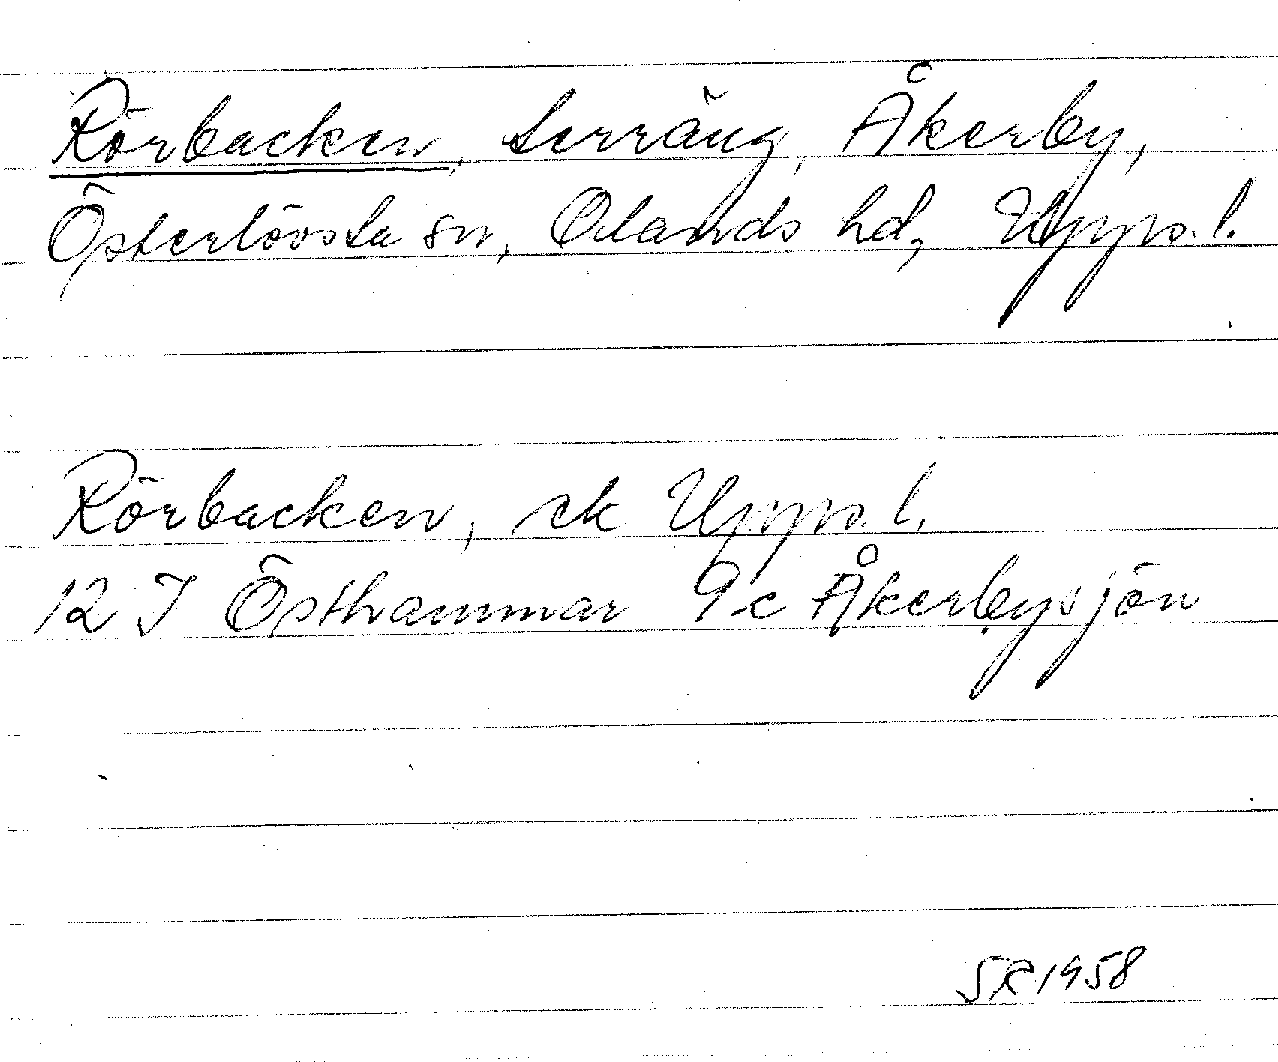 Rörbacken, terräng, Åkerby,
Österlövsta sn, Olands hd, Upps. l.
Rörbacken, ek Upps. l.
12 I Östhammar 9 c Åkerbysjön
SR 1958